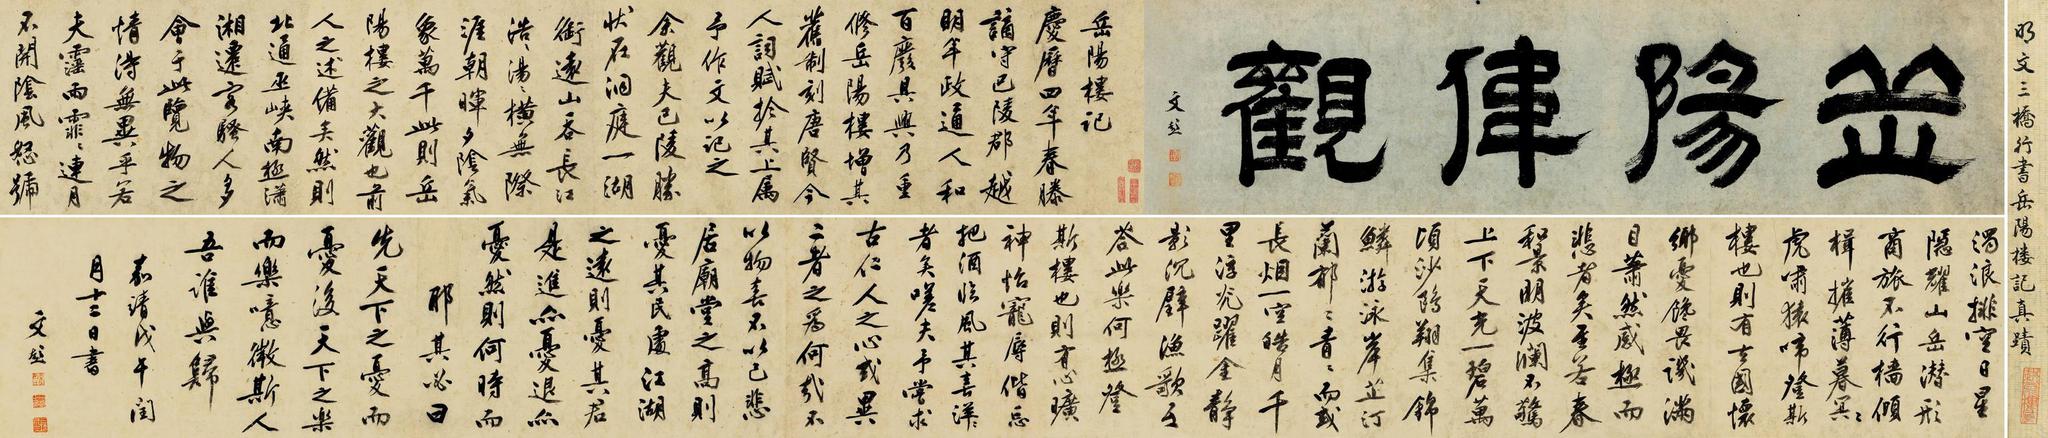 明文三橋行書岳陽樓記真蹟
岳陽偉觀
文彭
岳陽樓記
慶曆四年春滕
謫守巴陵郡越
明年政通人和
百廢具興乃重
修岳陽樓增其
舊制刻唐賢今
人詞賦於其上属
予作文以記之
余觀夫巴陵勝
状在洞庭一湖
銜遠山吞長江
浩〻湯〻橫無際
涯朝暉夕陰氣
象萬千此則岳
陽樓之大觀也前
人之述備矣然則
北通巫峽南極瀟
湘遷客騷人多
會于此覽物之
情得無異乎若
夫霪雨霏〻連月
不開陰風怒號
濁浪排空日星
隱耀山岳潜形
商旅不行檣傾
楫摧薄暮冥〻
虎嘯猿啼登斯
樓也則有去國懷
鄉憂讒畏譏滿
目蕭然感極而
悲者矣至若春
和景明波瀾不驚
上下天光一碧萬
頃沙鷗翔集錦
鱗游泳岸芷汀
蘭郁〻青〻而或
長烟一空皓月千
里浮光躍金静
影沉璧漁歌互
答此樂何極登
斯樓也則有心曠
神怡寵辱偕忘
把酒臨風其喜洋
者矣嗟夫予嘗求
古仁人之心或異
二者之為何哉不
以物喜不以己悲
居廟堂之高則
憂其民處江湖
之遠則憂其君
是進亦憂退亦
憂然則何時而
耶其必曰
先天下之憂而
憂後天下之樂
而樂噫微斯人
吾誰與歸
嘉靖戊午閏
月十二日書
文彭